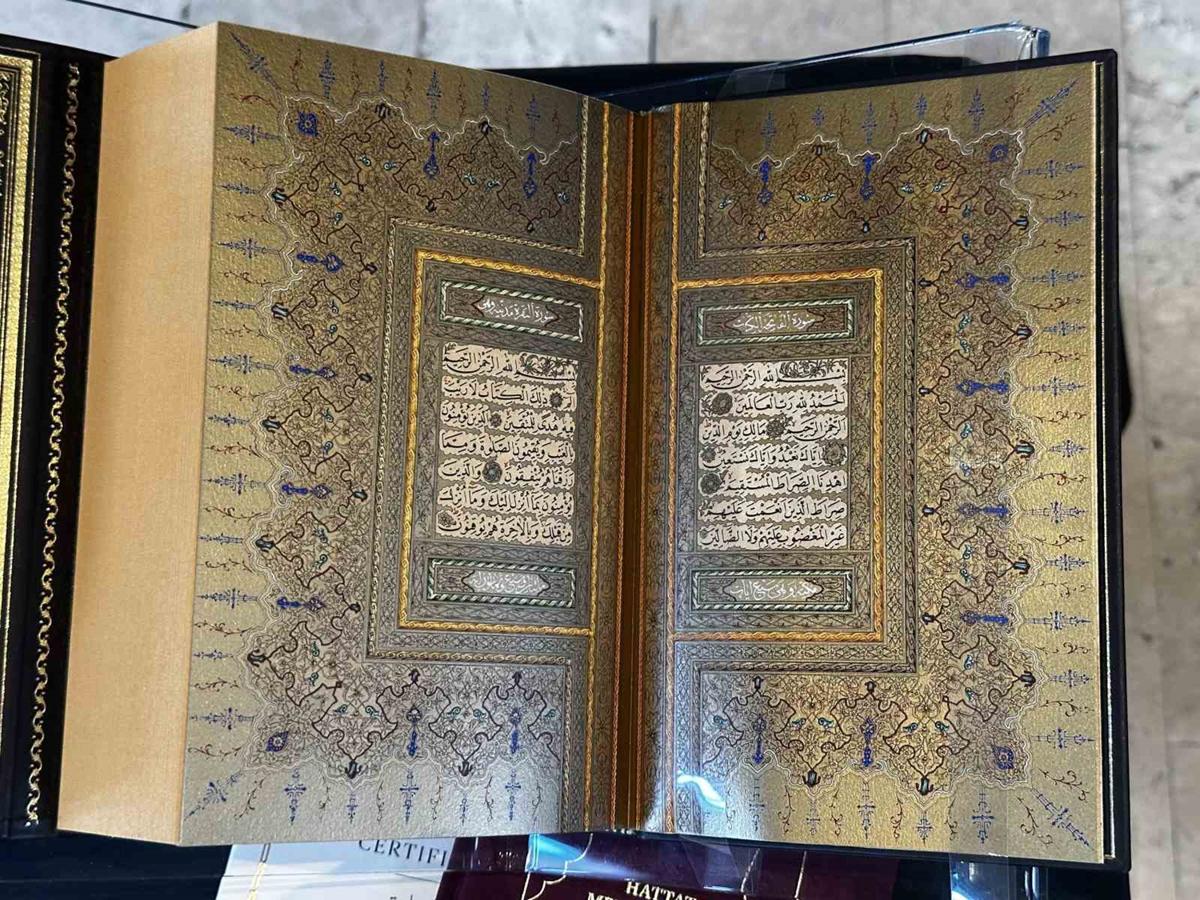 سورة الفاتحة الكتاب
بسم الله الرحمن الرحيم
الحمد لله رب العالمين
الرحمن الرحيم مالك يوم الدين
اياك نعبد واياك نستعين
اهدنا الصراط المستقيم
صراط الذين انعمت عليهم
غير المغضوب عليهم ولا الضالين
وهي سبع ايات
سورة البقرة مدنية وهي
بسم الله الرحمن الرحيم
الم ذلك الكتاب لا ريب
فيه هدى للمتقين الذين يؤمنون
بالغيب ويقيمون الصلوة ومما
رزقناهم ينفقون والذين
يؤمنون بما انزل اليك وما انزل
من قبلك وبالاخرة هم يوقنون
CERTIFI
HATTAT